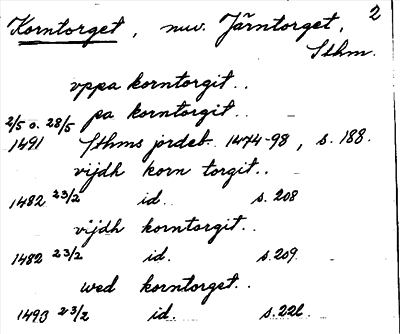 2
Korntorget, nuv. Järntorget,
Sthm.
vppa korntorgit..
2/5 o. 28/5 pa korntorgit..
1491 Sthms jordeb. 1474-98, s. 188.
vijdh korn torgit..
1482 23/2 id. s. 208
vijdh korntorgit..
1482 23/2 id. s. 209.
wed korntorget..
1493 23/2 id. s. 226.